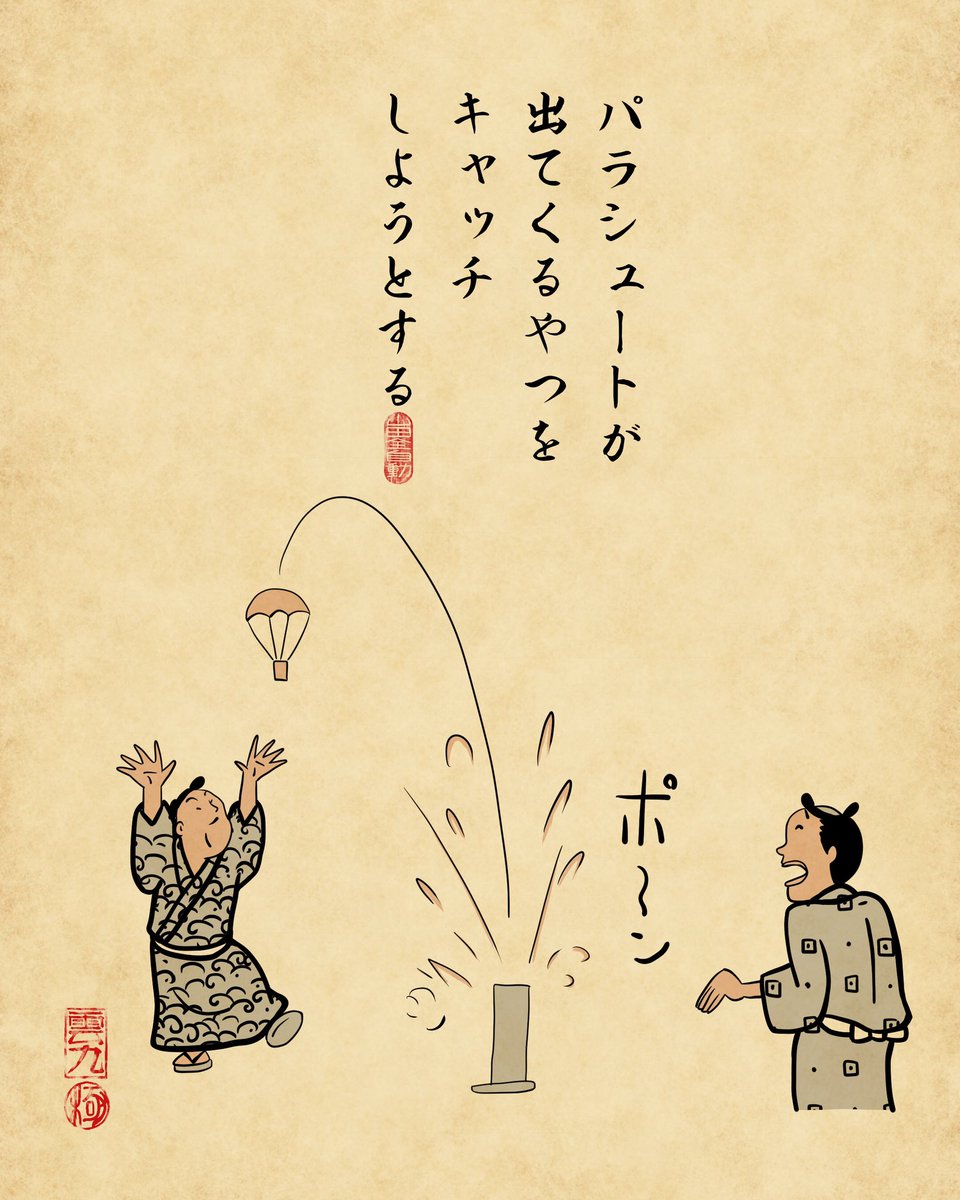 パラシュートが
出てくるやつを
キャッチ
しようとする
ポ〜ン